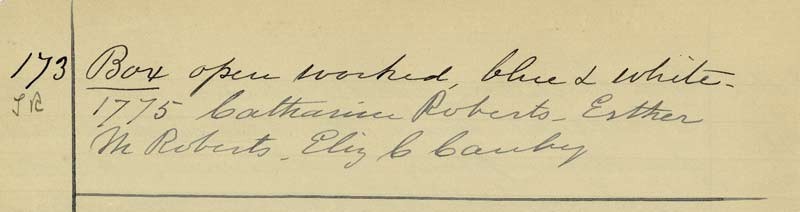 173 Box open worked, blue & white -
1775 Catharine Roberts - Esther
M Roberts - Eliz C Canby